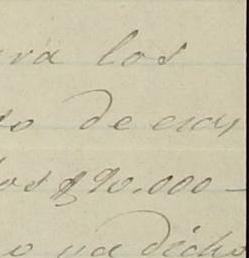 ra los
o de esas
los $90.000 -
o ya dicho